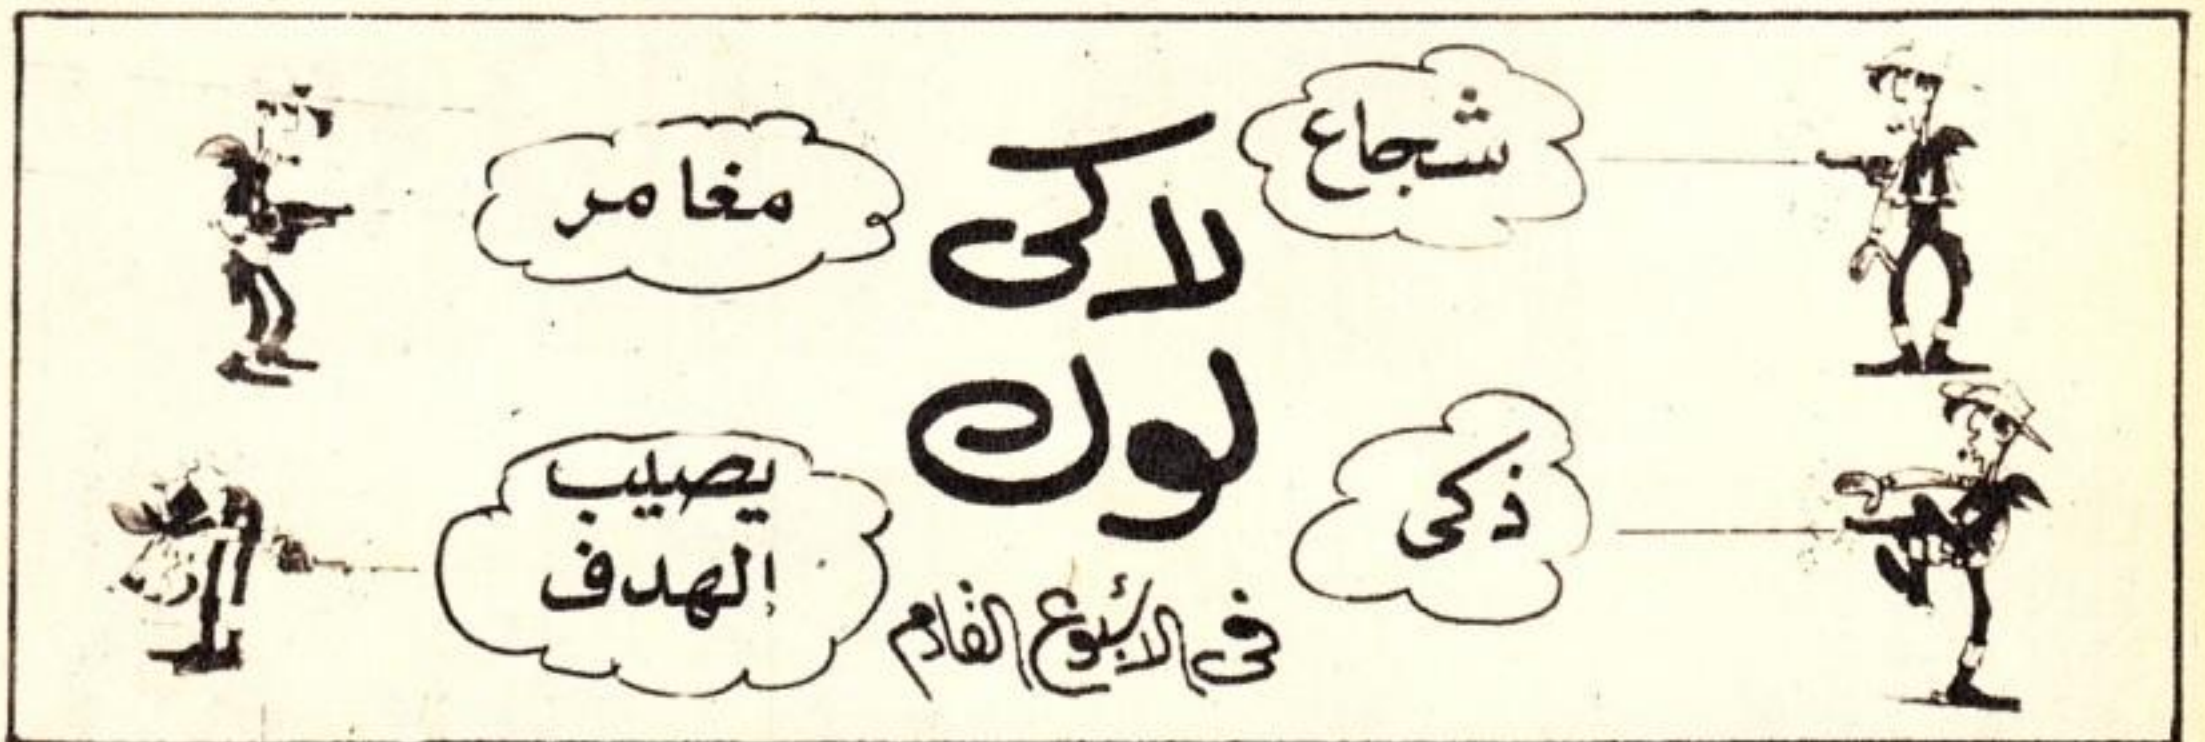 شجاع
لاكى
مغامر
لوك
ذكى
يصيب
الهدف
فى الأسبوع القادم